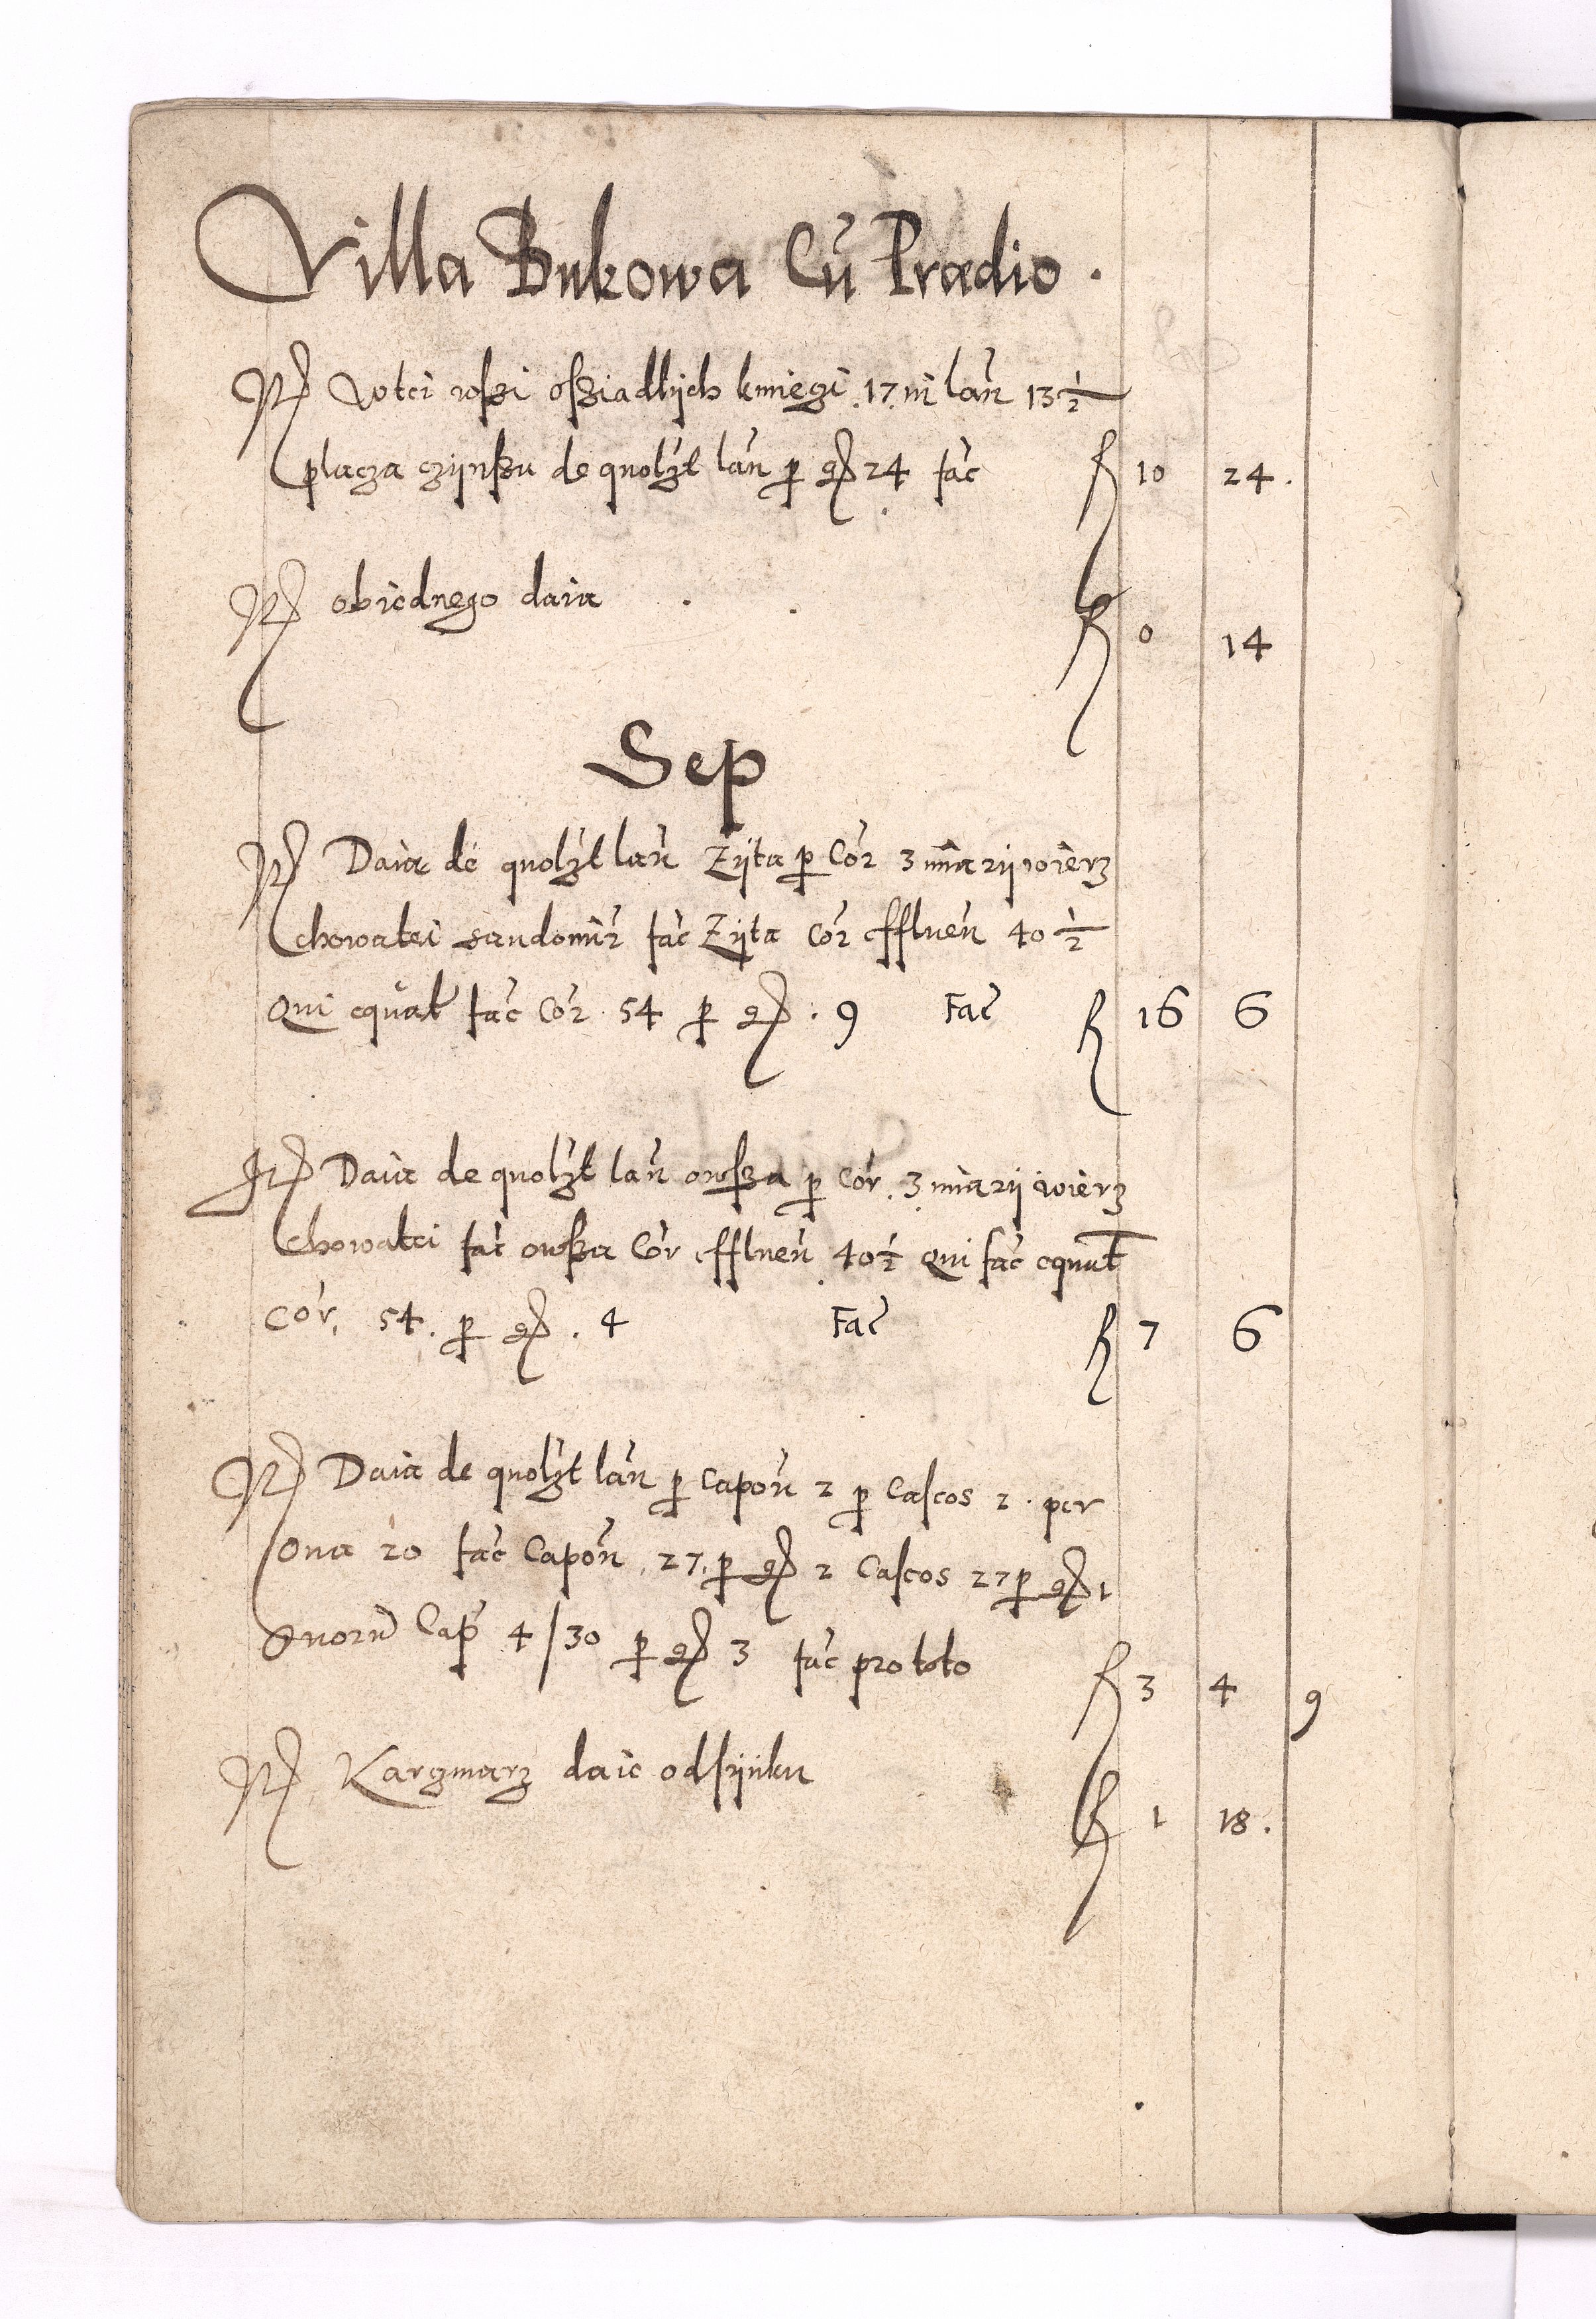 Villa Bukowa Cū Prædio .
Itͫ wtei wſzi oſziadlÿch kmiegi .17. in lań 13½
placza czÿnſzu de quolzt lań p gr 24 fac̄ fl 10 24.
Itͫ obiednego daia . . fl 0 14
Sep
Itͫ Daia de quolzt lań Zÿta p Cor̄ 3 miarÿ wierz
chowatei sandomir̄ fac̄ Zÿta Cor̄ effluen̄ 40½
Qui equat̄ fac̄ Cor̄ . 54 p gr . 9 Fac̄ fl 16 6
Itͫ Daia de quolzt lań owſza p Cor̄ . 3 miarÿ wierz
chowatei fac̄ owſza Cor̄ effluen̄ 40½ Qui fac̄ equat̄
Cor̄, 54. p gr . 4 Fac̄ fl 7 6
Itͫ Daia de quolzt lań p Capon̄ 2 p Caſeos 2 . per
Oua 20 fac̄ Capon̄ . 27. p gr 2 Caſeos 27 p gr 1
Ouorū Cap̄ 4/30 p gr 3 fac̄ pro toto fl 3 4 9
Itͫ Karczmarz daie odſzÿnku fl 1 18.